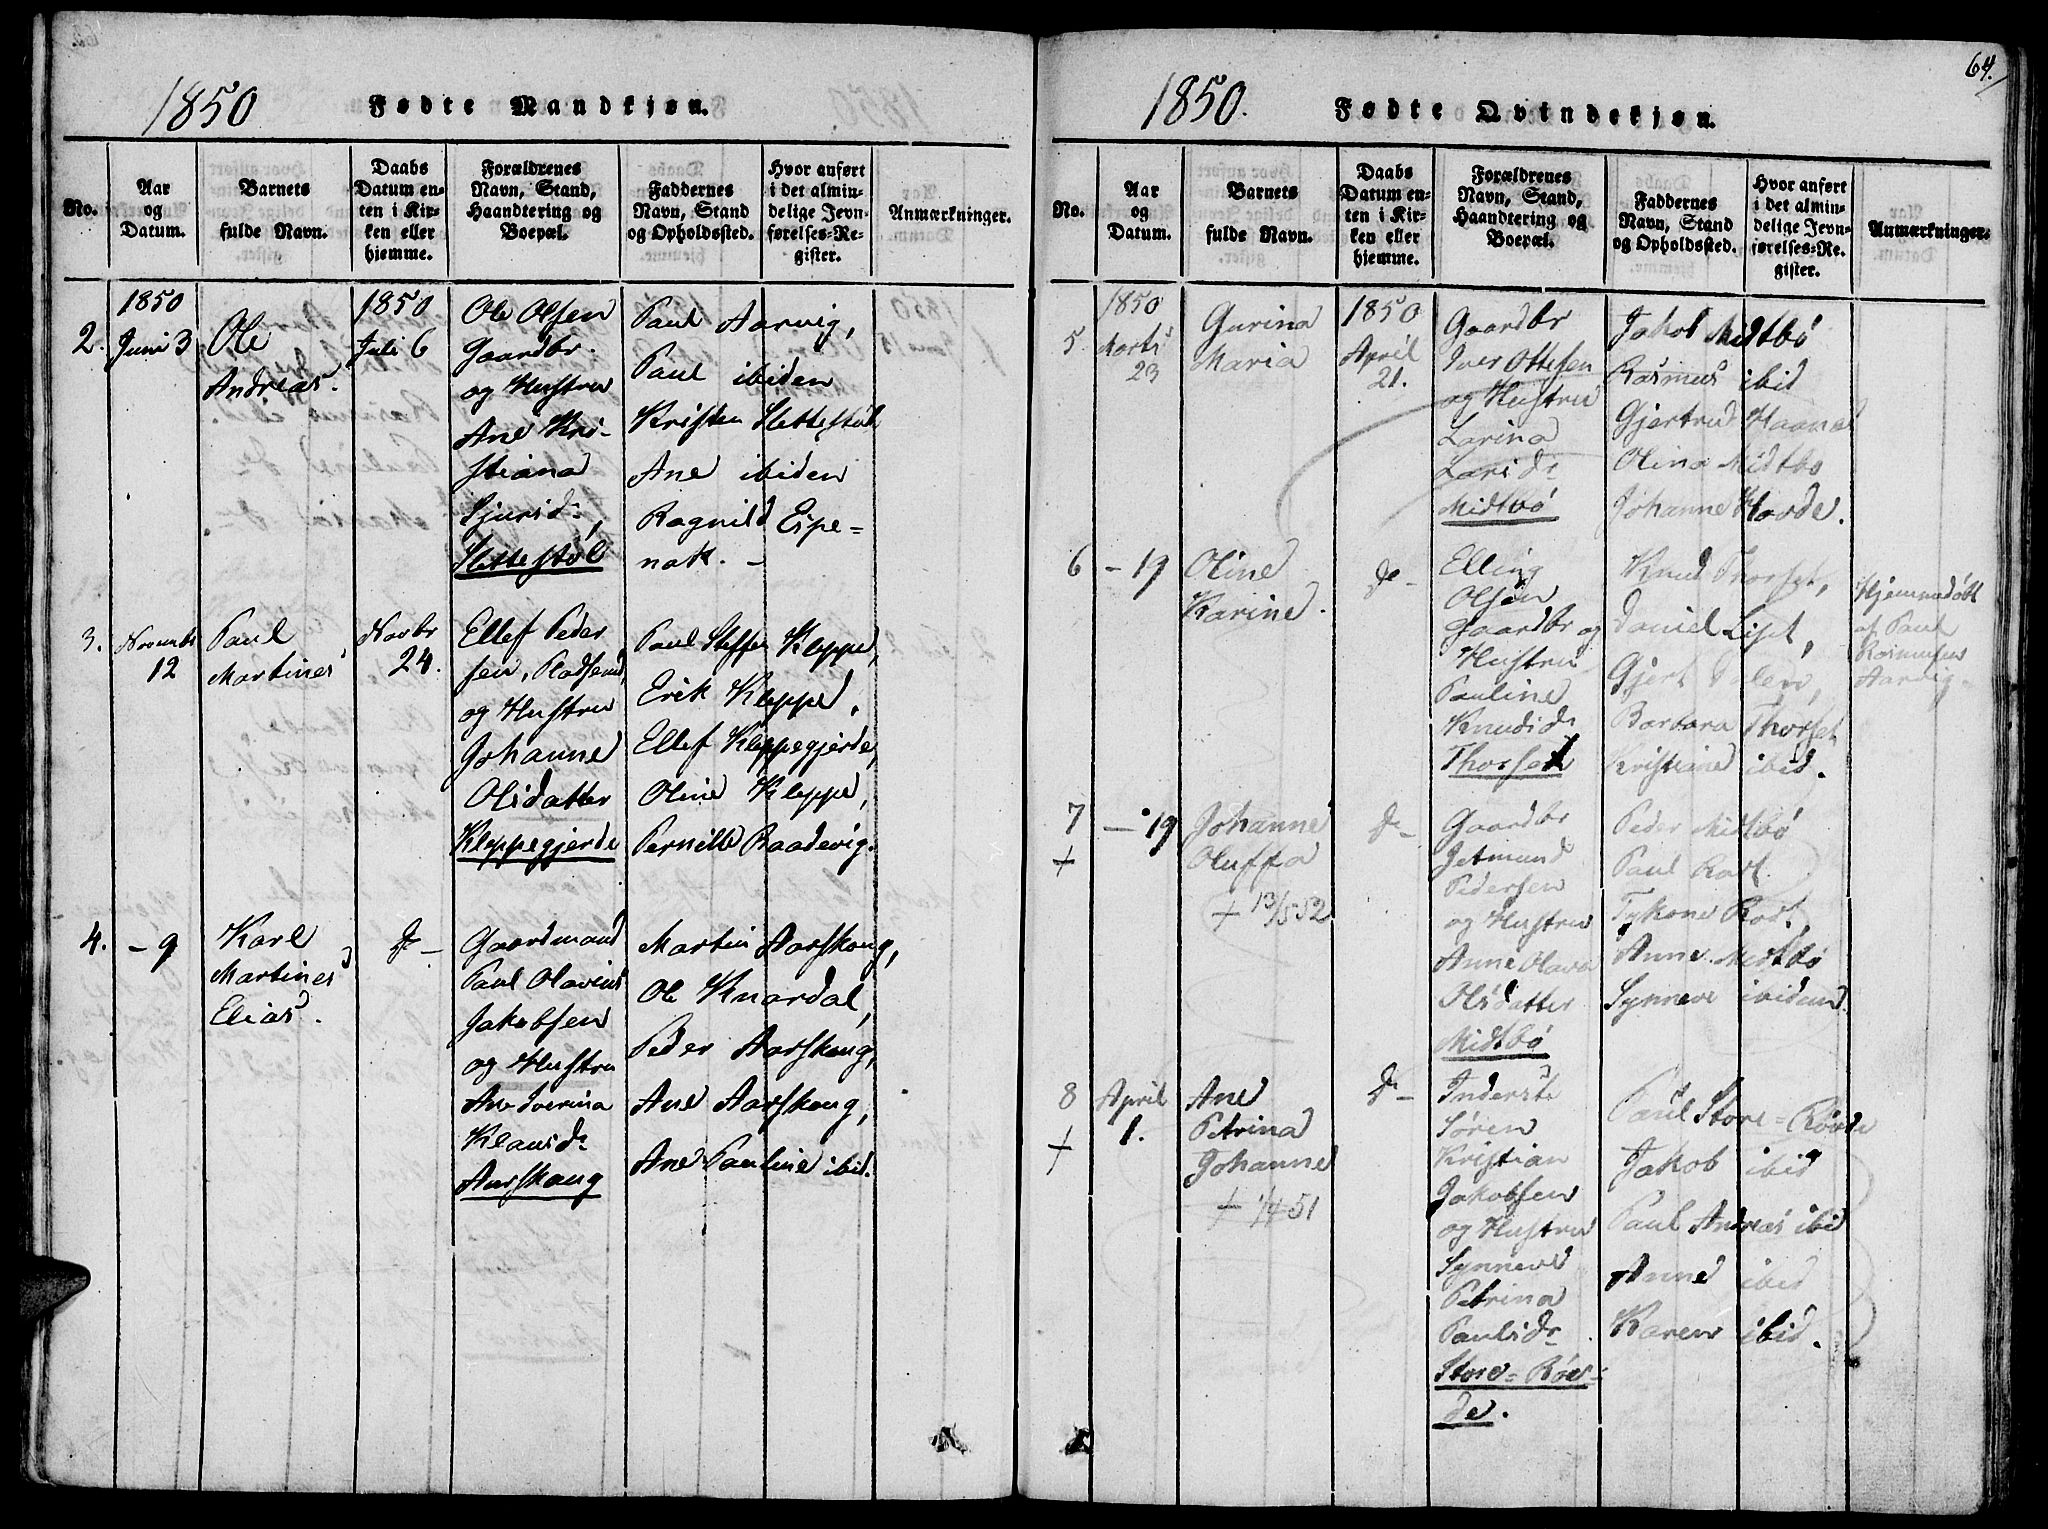 1850
Fødte Mandkjøn.
No.
Aar og Datum.
Barnets fulde Navn.
Daabs Datum enten i Kirken eller hjemme.
Forældrenes Navn, Stand, Haandtering og Boepæl.
Faddernes Navn, Stand og Opholdssted.
Hvor anført i det almindelige Jevnførelses-Register.
Anmærkninger.
2.
1850
Juni 3
Ole
Andreas.
1850
Juli 6
Ole Olsen
Gaardbr.
og Hustru
Ane Kri-
stiana
Sjursd:
Slettestøl
Paul Aarvig,
Paul ibiden
Kristen Slettestøl
Ane ibiden
Ragnild Eipe-
nak. –
3.
Novembr
12
Paul
Martines
Novbr
24.
Ellef Peder
sen,
og Hustru
Johanne
Olsdatter
Kleppegjerde
Paul Steffen Kleppe,
Erik Kleppe,
Ellef Kleppegjerde,
Oline Kleppe,
Pernille Raadevig.
4.
– 9
Karl
Martines
Elias.
do –
Gaardmand
Paul Olavius
Jakobsen
og Hustru
Ane Iverina
Klausdr
Aarskoug
Martin Aarskoug,
Ole Knardal,
Peder Aarskoug,
Ane Aarskoug,
Ane Pauline ibid.
64.
1850.
Fødte Qvindekjøn.
No.
Aar og Datum.
Barnets fulde Navn.
Daabs Datum enten i Kirken eller hjemme.
Forældrenes Navn, Stand, Haandtering og Boepæl.
Faddernes Navn, Stand og Opholdssted.
Hvor anført i det almindelige Jevnførelses-Register.
Anmærkninger.
5.
1850
Marts
23
Gurina
Maria
1850
April
21.
Gaardbr
Iver Ottesen
og Hustru
Larina
Larsdr
Midtbø
Jakob Midtbø
Rasmus ibid
Gjertrud Haana
Olina Midtbø
Johanne Hovde.
6
– 19
Oline
Karine.
do –
Elling
Olsen
Gaardbr og
Hustru
Pauline
Knudsdr
Thorset
Knud Thorset,
Daniel Liset,
Gjert Dalen,
Barbara Thorset
Kristiane ibid.
Hjemmedøbt
af Paul
Rasmusen
Aarvig.
7
+
– 19
Johanne
Oluffa
+ 13/5 52
do –
Gaardbr
Jetmund
Pedersen
og Hustru
Anne Olava
Olsdatter
Midtbø
Peder Midtbø
Paul Rost
Tykone Rost,
Anne Midtbø
Synneve ibidem
8
+
April
1.
Ane
Petrina
Johanne
+ 1/4 51
do –
Inderste
Søren
Kristian
Jakobsen
og Hustru
Synneve
Petrina
Paulsdr
Store-Røv-
de.
Paul Store-Røvde
Jakob ibid
Paul Andreas ibid
Anne ibid
Karen ibid.